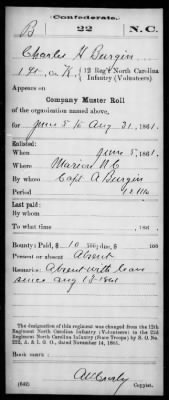 Confederate.
B 22 N.C.
Charles H Burgin
1 Sgt, Co. K, 12 Reg't North Carolina
Infantry (Volunteers)
Appears on
Company Muster Roll
of the organization named above,
for June 5 to Aug 31, 1861.
Enlisted:
When June 5, 1861.
Where Marion N.C
By whom Capt A Burgin
Period 12 Mo
Last paid:
By whom
To what time , 186 .
Bounty: Paid, $ 10 100; due, $ 100
Present or absent Absent
Remarks: Absent with leave
since Aug 13 1861
The designation of this regiment was changed from the 12th
Regiment North Carolina Infantry (Volunteers) to the 22d
Regiment North Carolina Infantry (State Troops) by S. O. No.
222, A. & I. G. O., dated November 14, 1861.
Book mark:
(642) Copyist.